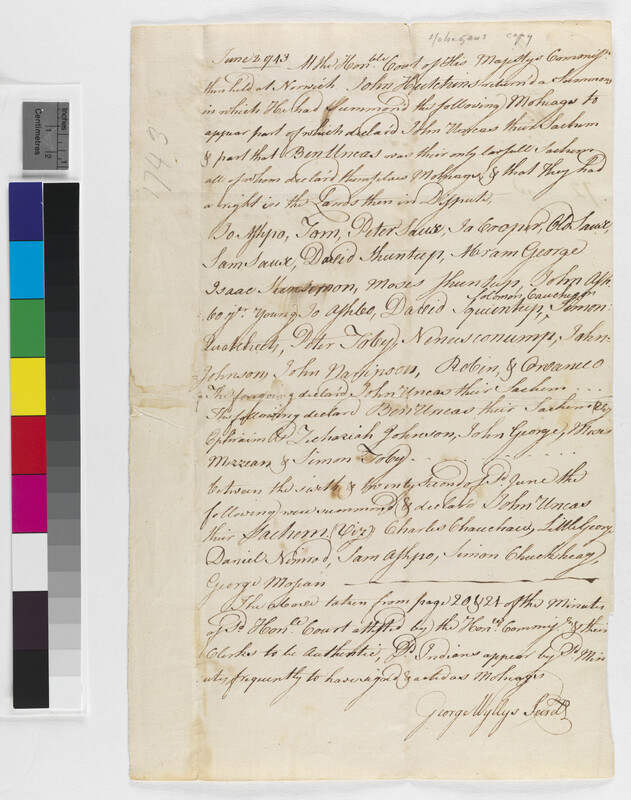 Mohegans copy
June 2 1743 At the Honble Court of His Majestys Commissrs
then held at Norwich John Hutchins returnd a Summons
in which He had Summond the following Moheags to
appear part of which declard John Uncas their Sachem
& part that Ben Uncas was their only lawfull Sachem
all of whom declard themselves Moheags, & that they had
a right in the Lands then in Dispute.
Jo Ashpo, Tom, Peter Saux, Ja Cooper, Old Saux,
Sam Saux, David Shuntup, Abram George
Isaac Moses Shuntup, John Ash
bo jr Young Jo Ashbo, David Squentup, Simon
Solomon Cauchegon
Quakheets, Peter Toby, Nenesconump, John
Johnson, John Nannipoon, Robin, & Cowaneo
The foregoing declard John Uncas their Sachem
The following declard Ben Uncas their Sachem
Ephraim & Zechariah Johnson, John George, Moses
Mazzean & Simon Toby
between the sixth & twenty second of Sd June the
following were summond & declard John Uncas
their Sachem (Viz) Charles Chauchaux, Little George
Daniel Nimrod, Sam Ashpo, Simon Chuckheag,
George Mopan
The above taken from page 20 & 21 of the Minutes
of Sd Honble Court attested by the Honble Commissrs & their
Clerkes to be Authentic, Sd Indians appear by Sd Min
utes frequently to have signd & acted as Moheags
George Wyllys Secrety
1743
Inches
1
Centimetres
1
2